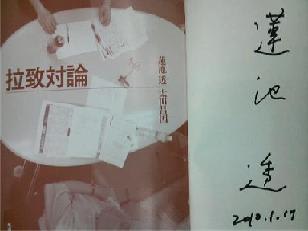 拉致対論
蓮池透 太田昌国
蓮池 透
2010.1.17